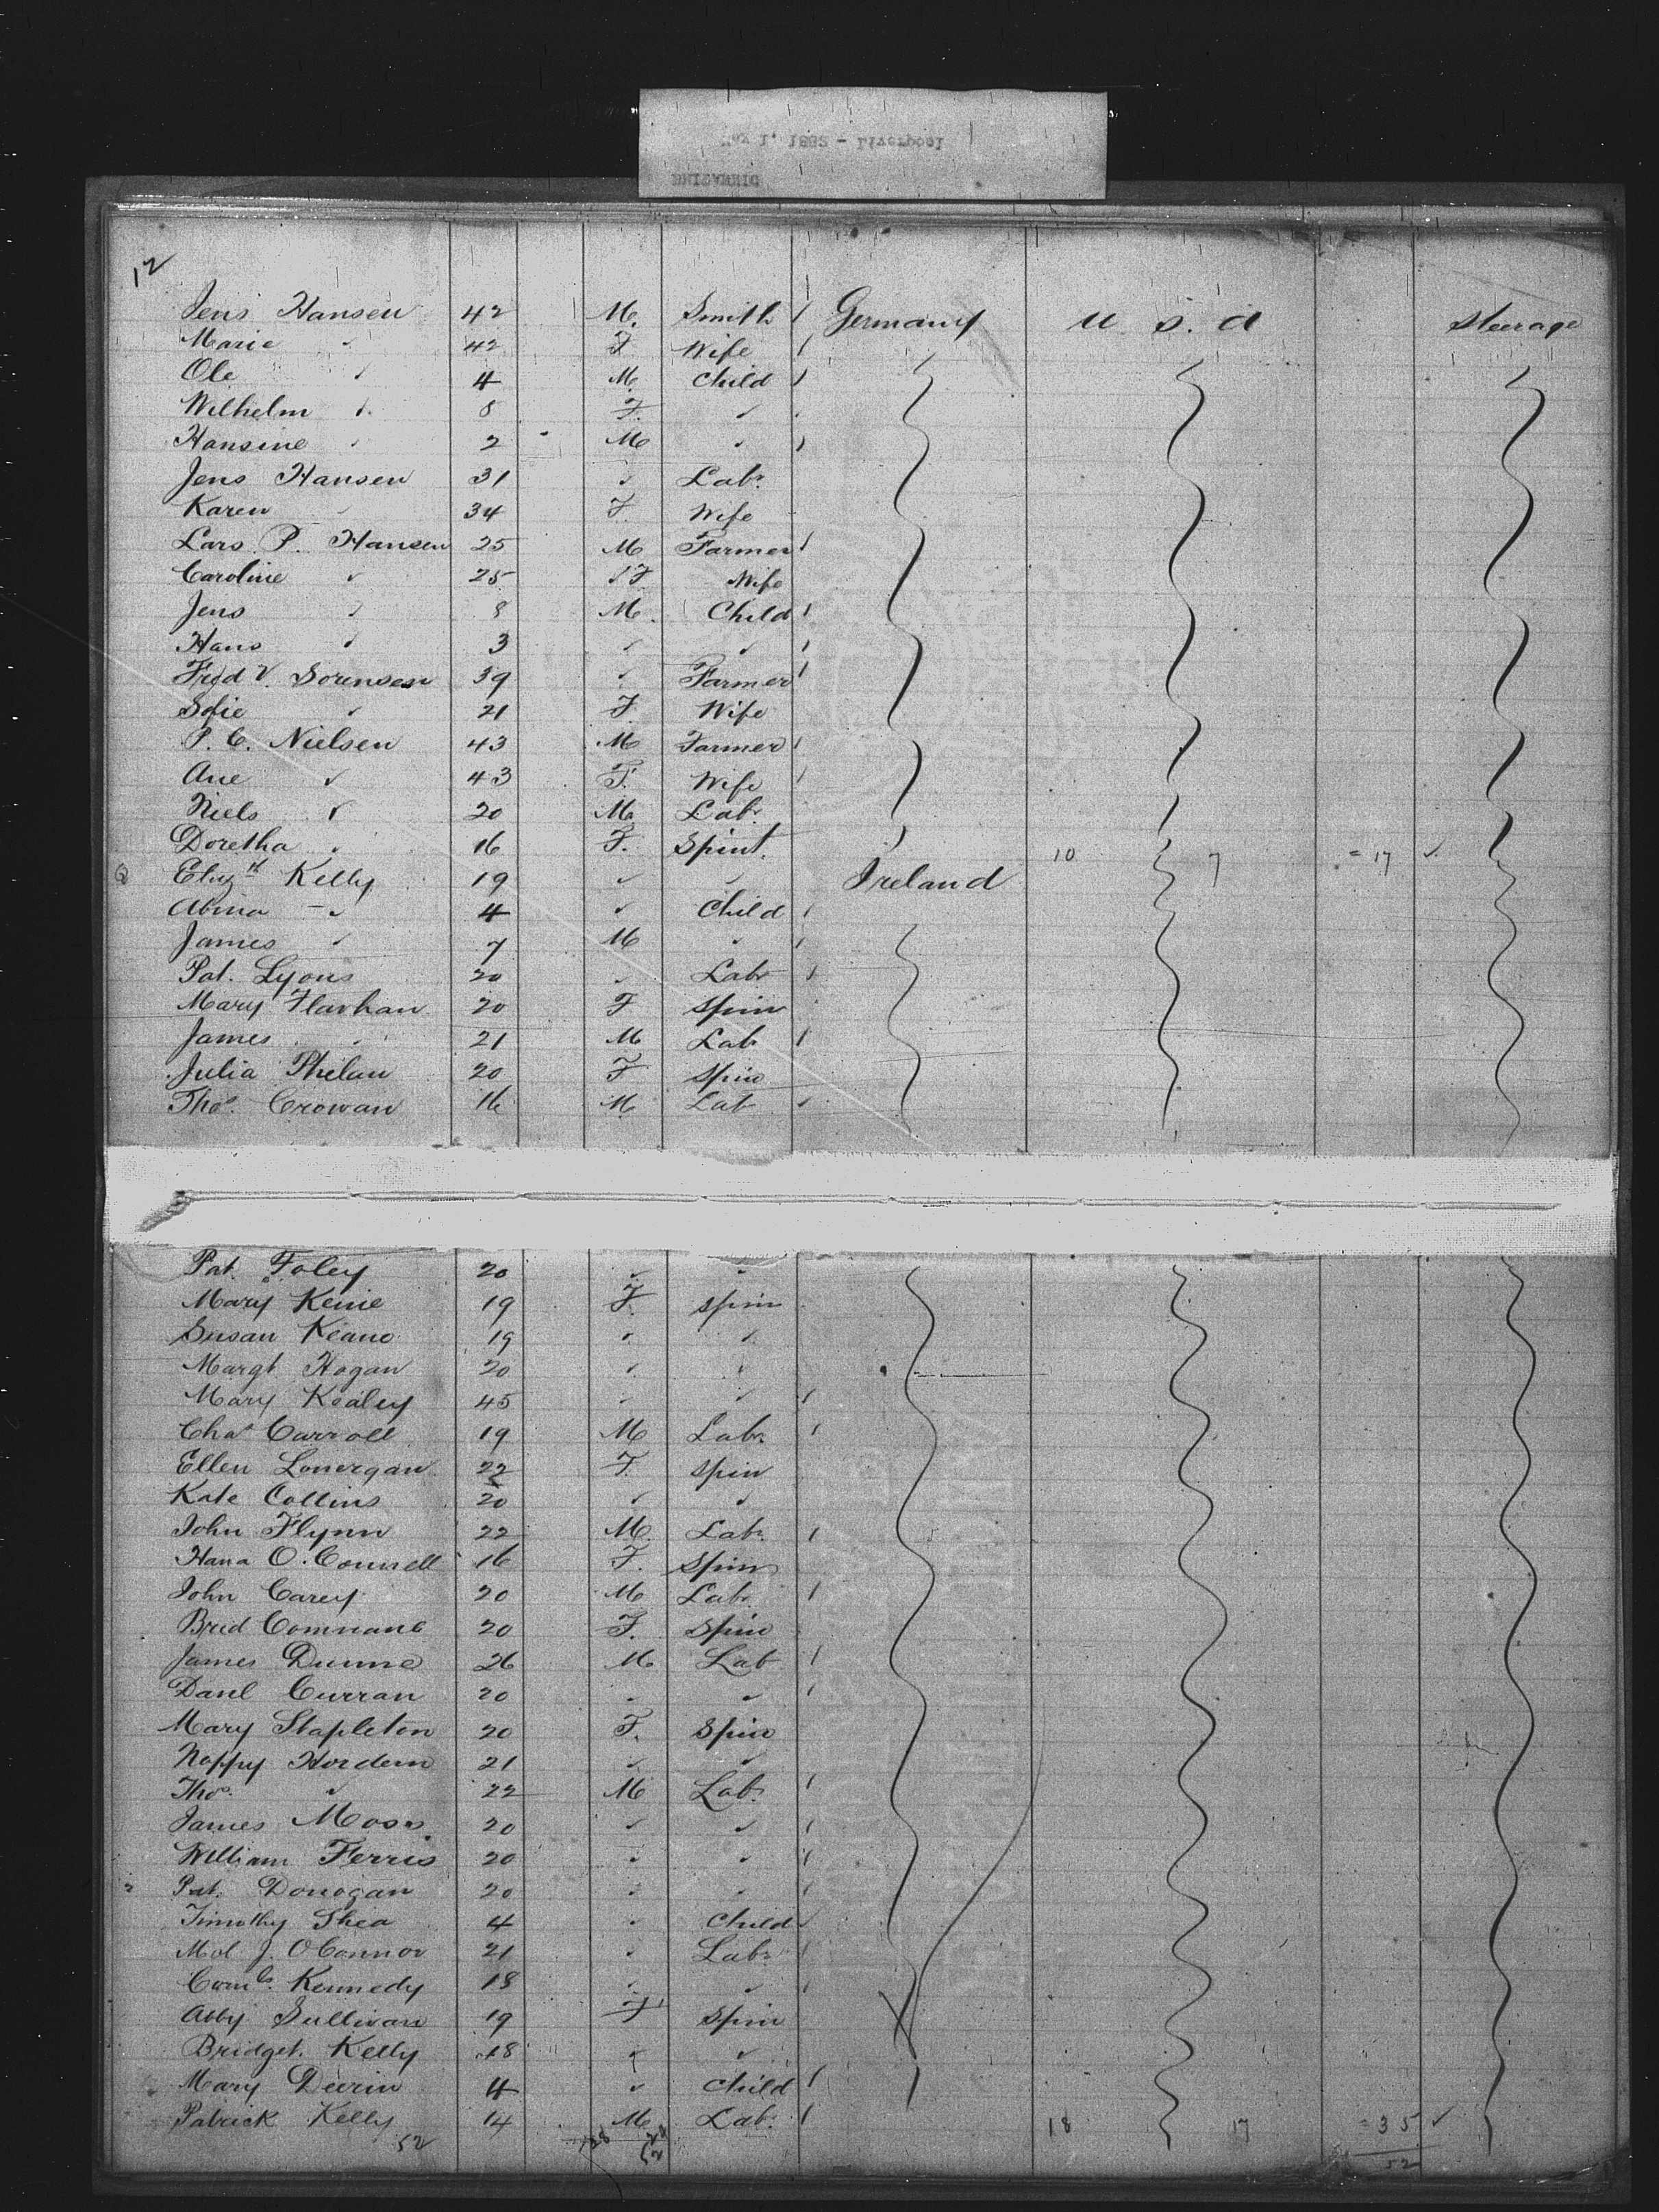 May 1, 1882 - Liverpool
12
Jens Hansen 42 M. Smith Germany U. S. A Steerage
Marie " 42 F Wife
Ole " 4 M. Child
Wilhelm " 8 F. "
Hansine " 2 M "
Jens Hansen 31 " Labr.
Karen " 34 F. Wife
Lars P. Hansen 25 M Farmer
Caroline " 25 F Wife
Jens " 8 M. Child
Hans " 3 " "
Fred V. Sorensen 39 " Farmer
Sofie " 21 F Wife
P. C. Nielsen 43 M Farmer
Ane " 43 F. Wife
Niels " 20 M Labr.
Doretha " 16 F. Spinst. 10 7 = 17
Elizth Kelly 19 " " Ireland
Abina " 4 " Child
James " 7 M "
Pat. Lyons 20 " Labr
Mary Flavhan 20 F Spin
James " 21 M Lab
Julia Phelan 20 F Spin
Thos. Crowan 16 M Lab
Pat. Foley 20 " "
Mary Kenie 19 F. Spin
Susan Keane 19 " "
Margt Hogan 20 " "
Mary Kealey 45 " "
Chas Carroll 19 M Labr.
Ellen Lonergan 22 F. Spin
Kate Collins 20 " "
John Flynn 22 M. Labr.
Hana O. Connell 16 F. Spin
John Carey 20 M Labr.
Brid Comnane 20 F. Spin
James Dunne 26 M Lab
Danl Curran 20 " "
Mary Stapleton 20 F. Spin
Noppy Hordern 21 " "
Thos. " 22 M Labr.
James Moss 20 " "
William Ferris 20 " "
Pat. Donogan 20 " "
Timothy Shea 4 " Child
Mcl J. OConnor 21 " Labr.
Corns. Kennedy 18 " "
Abby Sullivan 19 F Spin
Bridget. Kelly 18 " "
Mary Deerin 4 " Child
Patrick Kelly 14 M Labr. 18 17 = 35
52 28 24 52 52